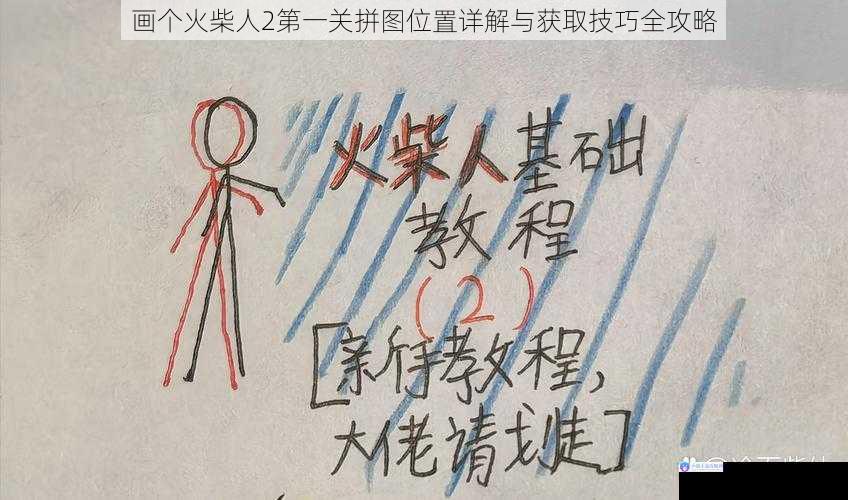 画个火柴人2第一关拼图位置详解与获取技巧全攻略
火柴人基础
教程
(2)
[新手教程,
大佬请划走]